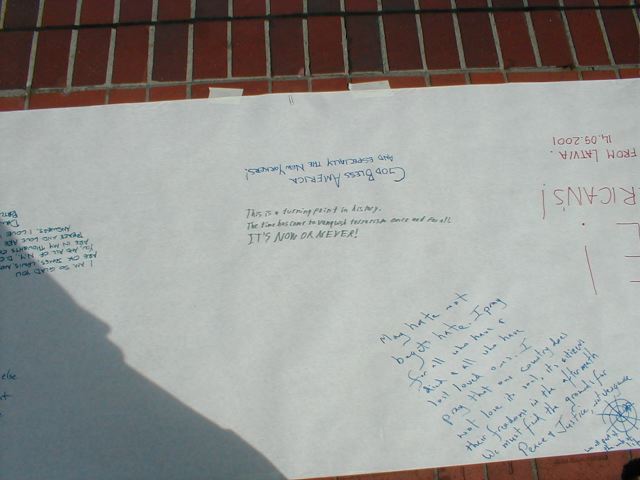 GOD BLESS AMERICA
AND ESPECIALLY THE NEW YORKERS!
This is a turning point in history.
The time has come to vanquish terrorism once and for all
IT'S NOW OR NEVER!
14.09.2001
FROM LATVIA.
RICANS!
I AM SO GLAD YOU
ARE IN MY THOUGHTS
else
May hate not
beget hate. I pray
for all who have
died & all who have
lost loved ones. I
pray that our country does
not lose its soul, its citizens
their freedoms in the aftermath
We must find the grounds for
Peace & Justice, not vengeance